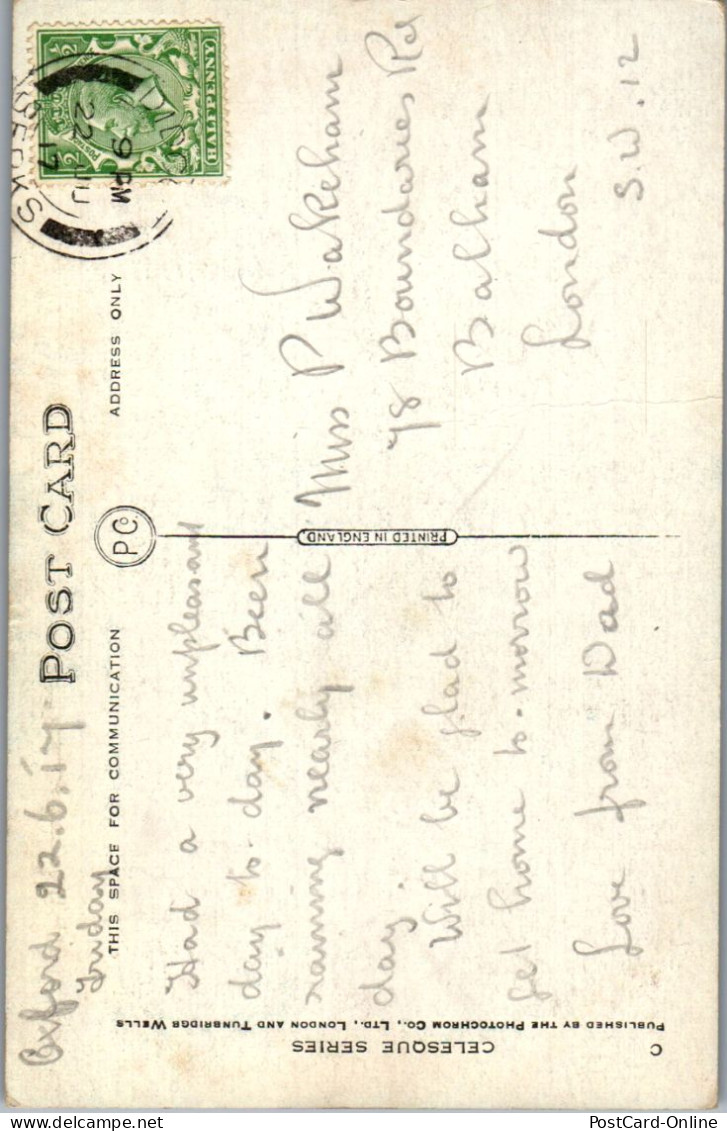 Oxford 22.6.17
Friday
POST CARD
P.C.
THIS SPACE FOR COMMUNICATION
ADDRESS ONLY
HALFPENNY
9 PM
22 JU
17
BERKS
Had a very unpleasant
day to-day. Been
raining nearly all
day.
Will be glad to
get home to-morrow
Love from Dad
PRINTED IN ENGLAND.
Miss P Wakeham
78 Boundaries Rd
Balham
London
S.W.12
CELESQUE SERIES
PUBLISHED BY THE PHOTOCHROM CO., LTD., LONDON AND TUNBRIDGE WELLS
C
PostCard-Online